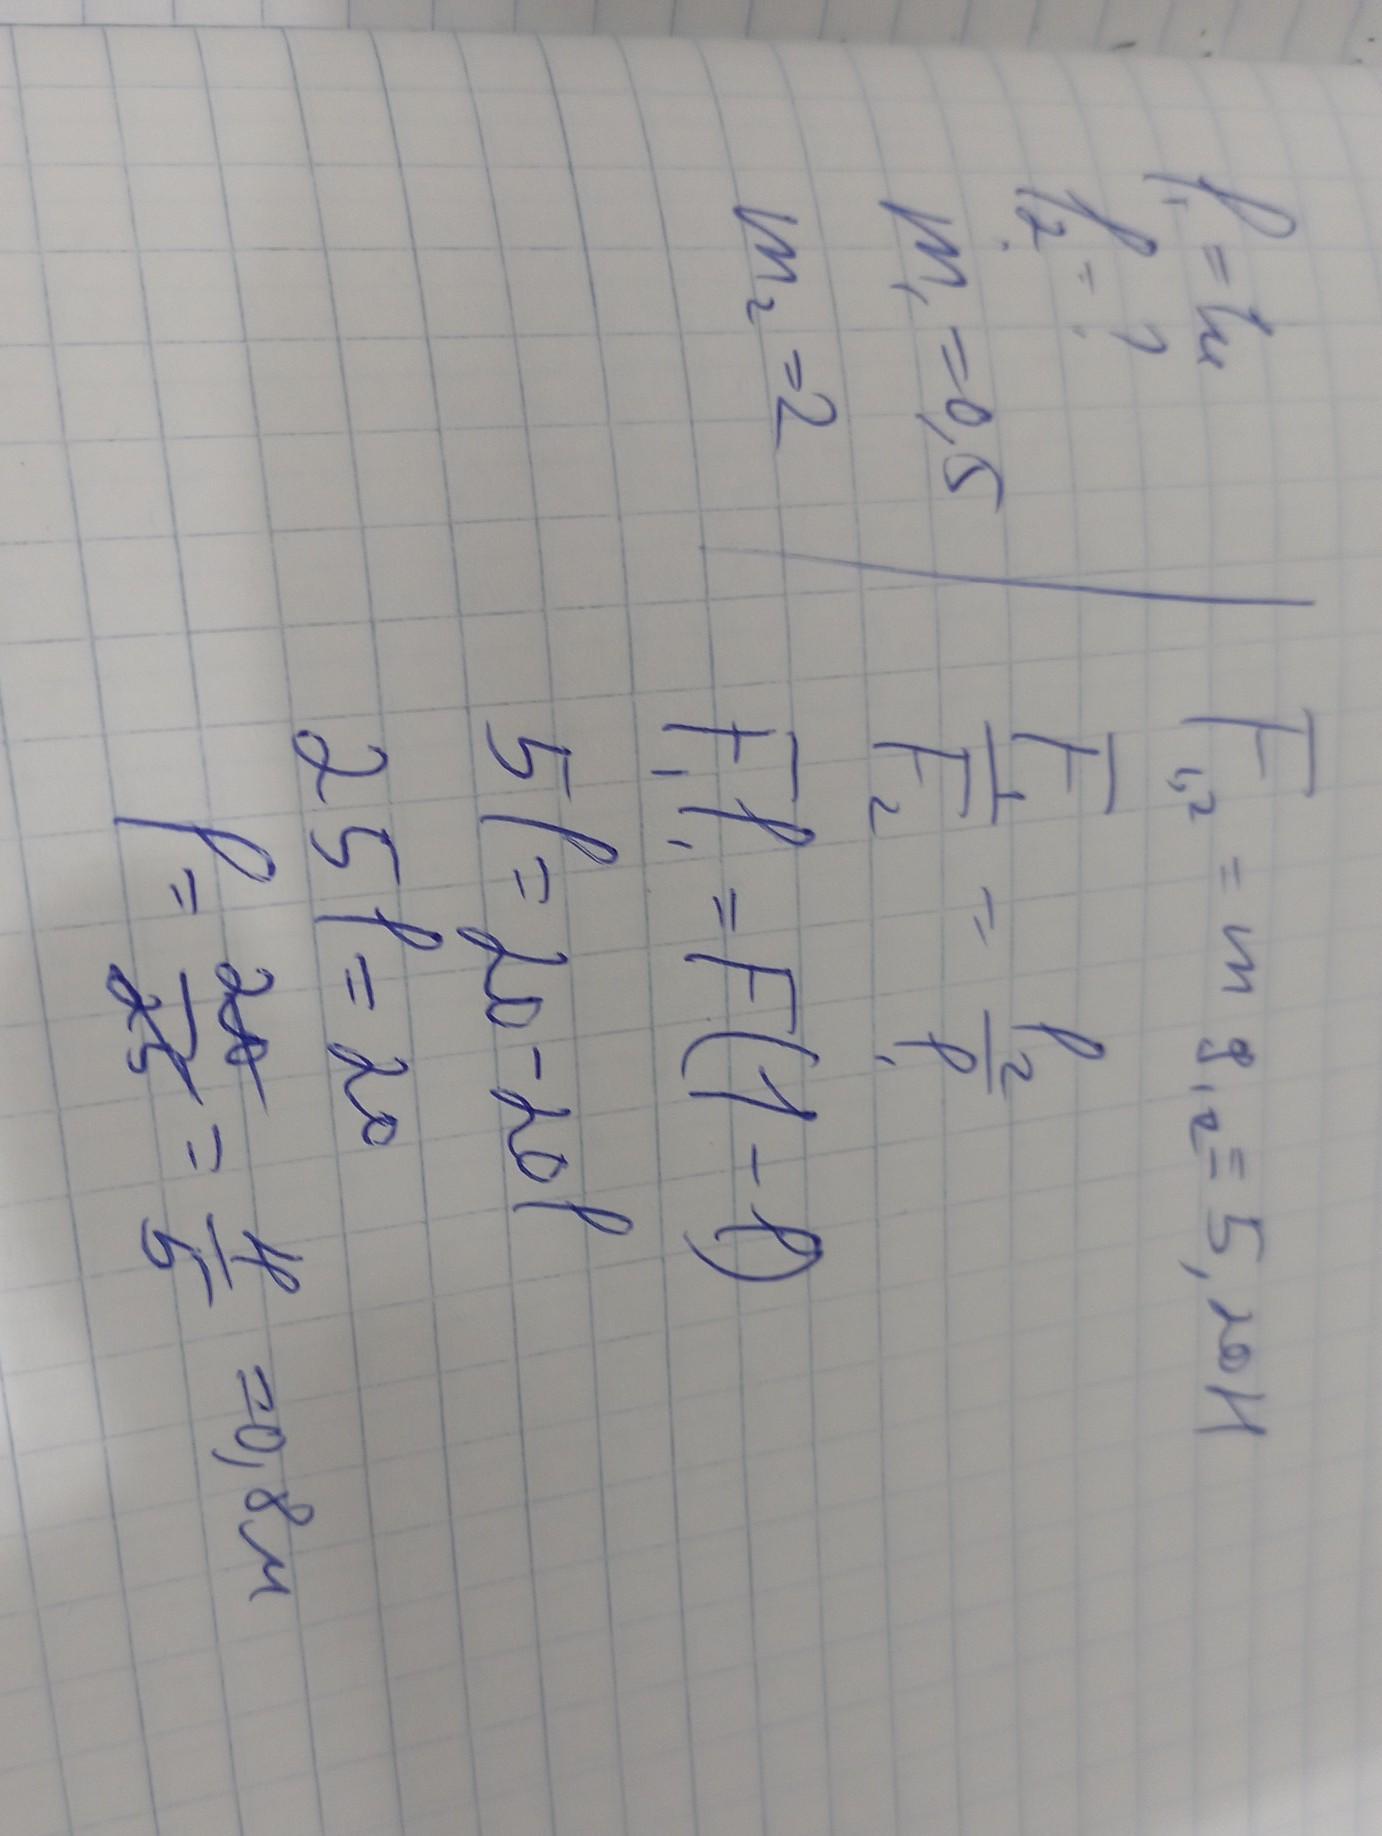 l₁ = 1м
l₂ = ?
m₁ = 0,5
m₂ = 2
F₁,₂ = m g₁,₂ = 5, 20Н
F₁/F₂ = l₂/l₁
F₁l₁ = F(1 - l)
5l = 20 - 20l
25l = 20
l = 20/25 = 4/5 = 0,8м